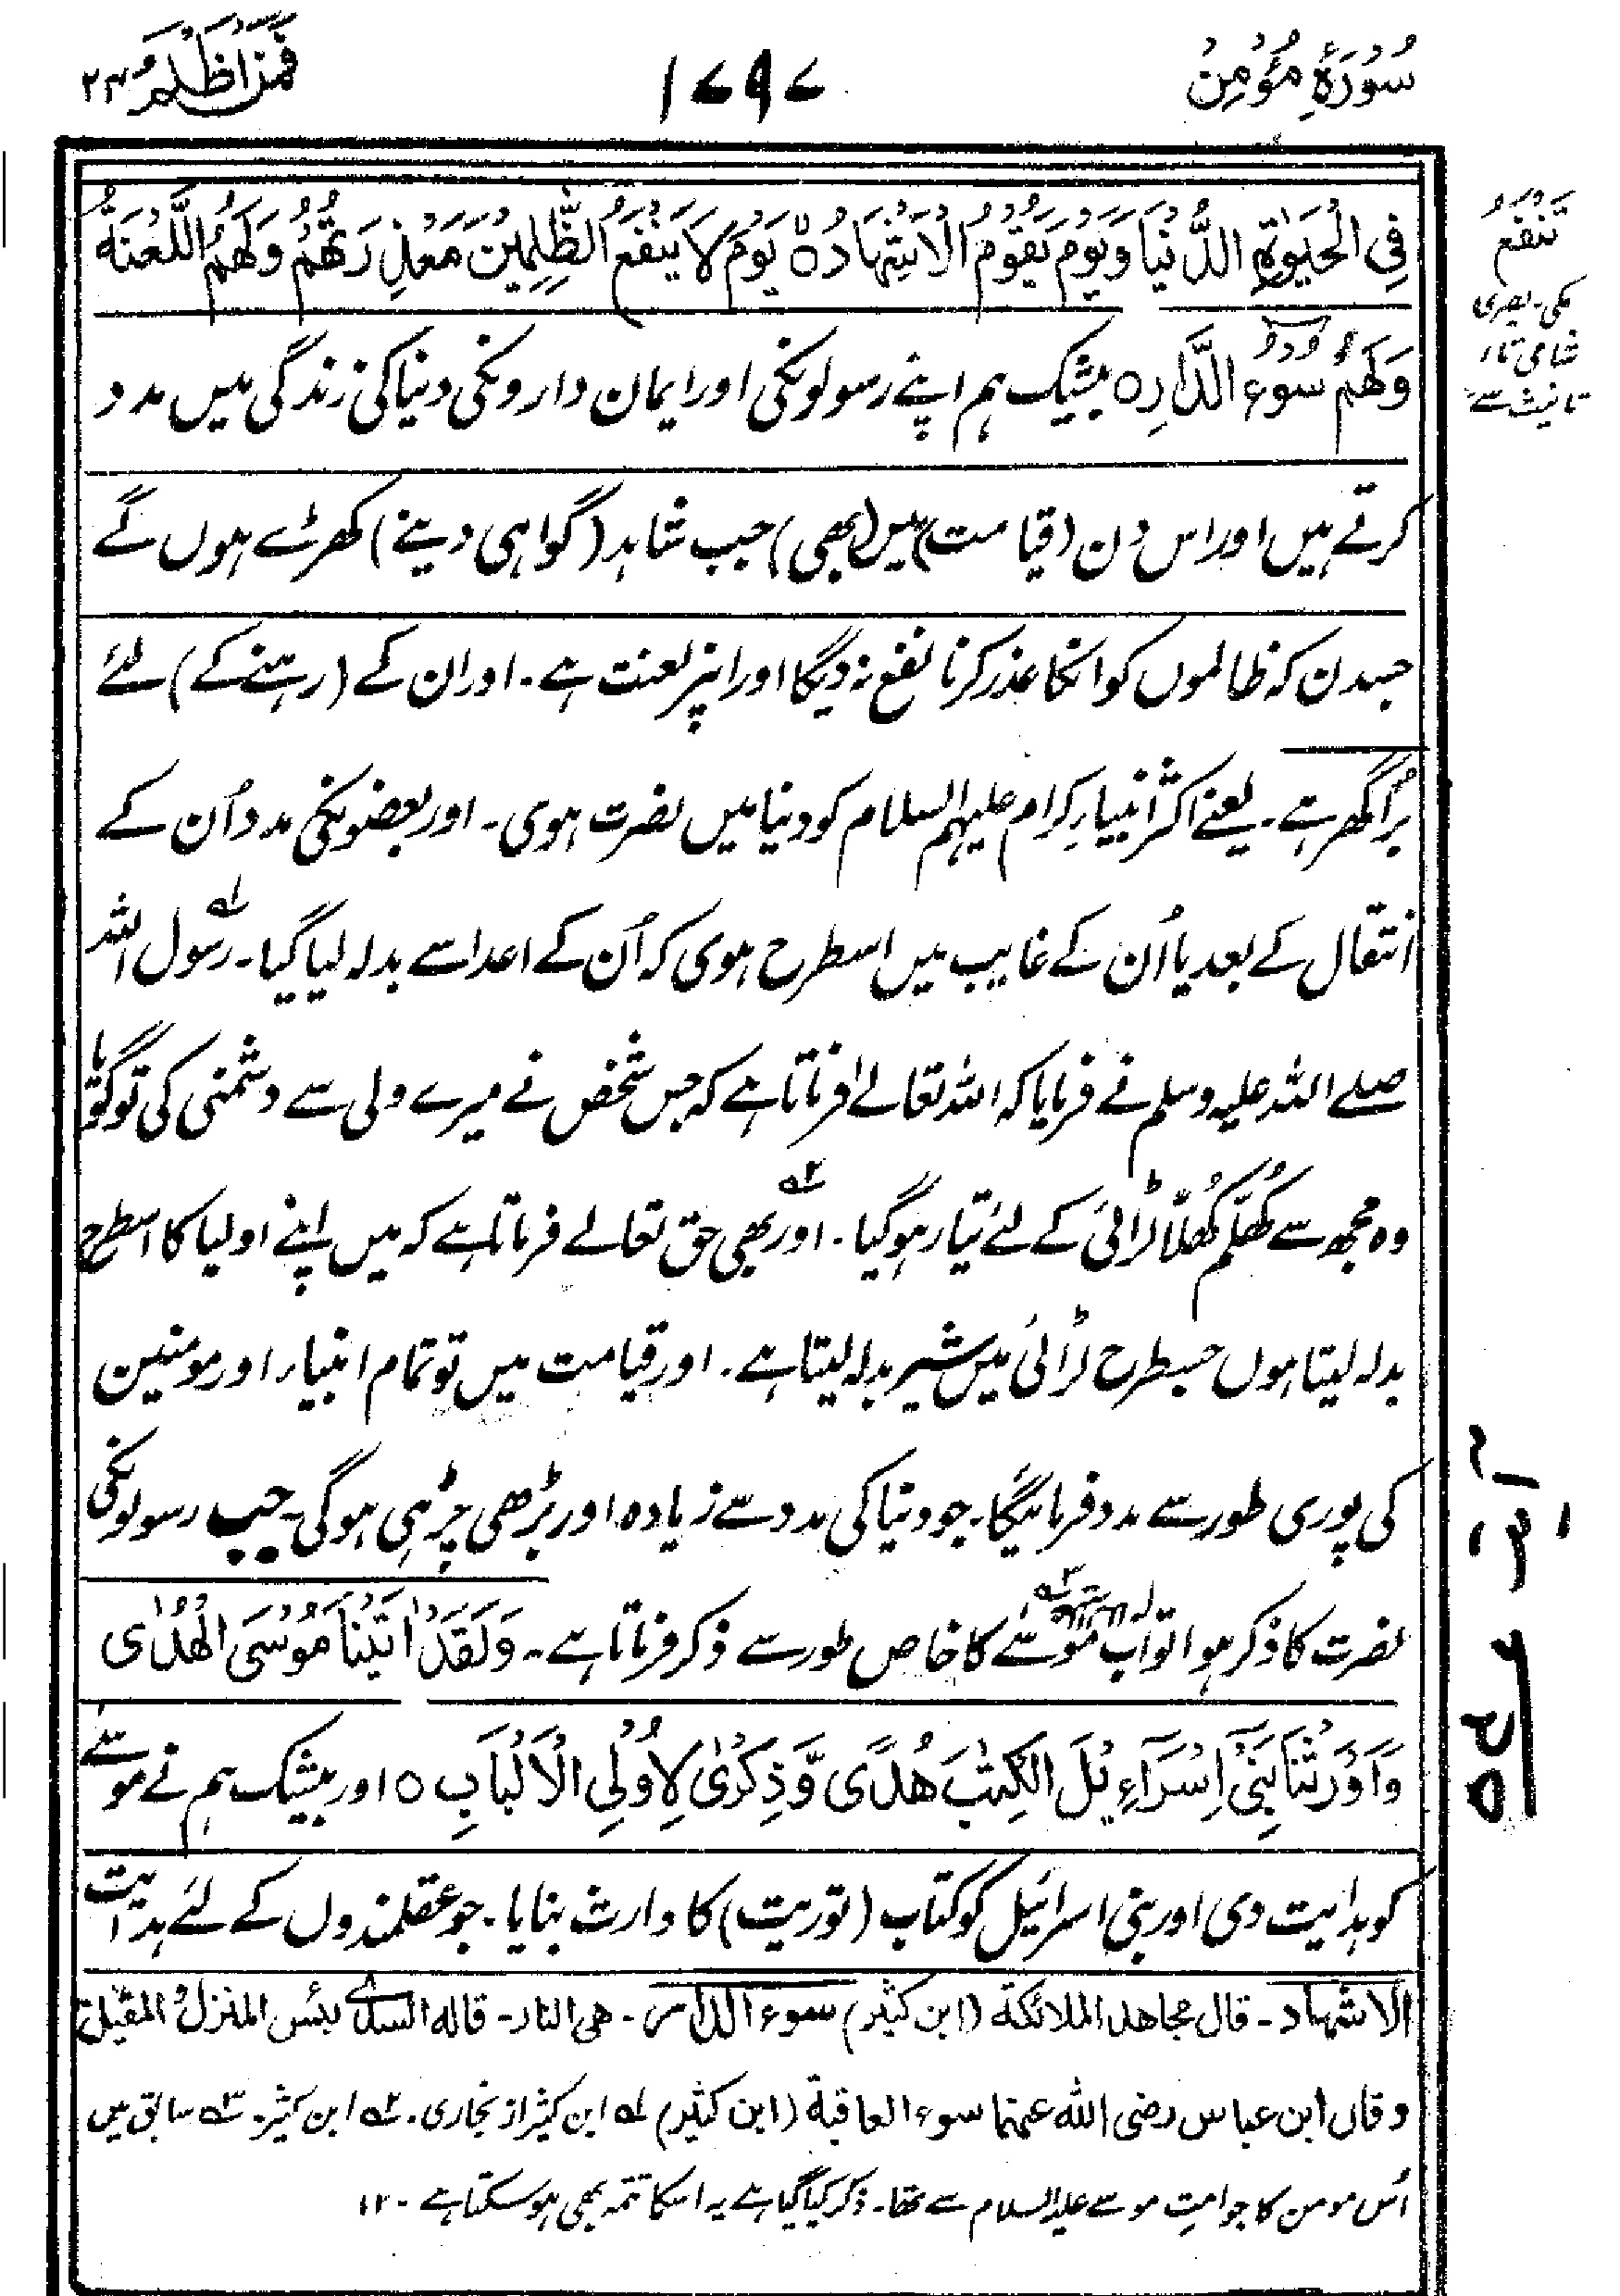 سُوْرَۃِ مُؤْمِنْ
۱۷۹۷
فَمَنْ اَظْلَمُ ۲۴
فِی الْحَیٰوۃِ الدُّنْیَا وَیَوْمَ یَقُوْمُ الْاَشْہَادُ ۵ یَوْمَ لَا یَنْفَعُ الظّٰلِمِیْنَ مَعْذِرَتُهُمْ وَلَهُمُ اللَّعْنَةُ
وَلَهُمْ سُوْءُ الدَّارِ ۵ بیشک ہم اپنے رسولونکی اور ایمان دارونکی دنیا کی زندگی میں مدد
کرتے ہیں اور اس دن (قیامت) میں (بھی) جب شاہد (گواہی دینے) کھڑے ہوں گے
جسدن کہ ظالموں کو انکا عذر کرنا نفع نہ دیگا اور انپر لعنت ہے۔ اور ان کے (رہنے کے) لئے
بُرا گھر ہے۔ یعنے اکثر انبیاءِ کرام علیہم السلام کو دنیا میں نصرت ہوی۔ اور بعضونکی مدد اُن کے
انتقال کے بعد یا اُن کے غایب میں اسطرح ہوی کہ اُن کے اعدا سے بدلہ لیا گیا۔ رسول اللہ
صلے اللہ علیہ وسلم نے فرمایا کہ اللہ تعالےٰ فرماتا ہے کہ جس شخص نے میرے ولی سے دشمنی کی تو گویا
وہ مجھ سے کُھلَّم کُھلَّا لڑائی کے لئے تیار ہوگیا۔ اور بھی حق تعالےٰ فرماتا ہے کہ میں اپنے اولیا کا اسطرح
بدلہ لیتا ہوں جسطرح لڑائی میں شیر بدلہ لیتا ہے۔ اور قیامت میں تو تمام انبیاء اور مومنین
کی پوری طور سے مدد فرمائیگا۔ جو دنیا کی مدد سے زیادہ اور بڑھی چڑہی ہوگی۔ جب رسولونکی
نصرت کا ذکر ہوا تو اب موسےٰ کا خاص طور سے ذکر فرماتا ہے۔ وَلَقَدْ اٰتَیْنَا مُوْسَی الْهُدٰی
وَاَوْرَثْنَا بَنِیْٓ اِسْرَآءِیْلَ الْکِتٰبَ هُدًی وَّذِکْرٰی لِاُولِی الْاَلْبَابِ ۵ اور بیشک ہم نے موسےٰ
کو ہدایت دی اور بنی اسرائیل کو کتاب (توریت) کا وارث بنایا۔ جو عقلمندوں کے لئے ہدایت
الاشہاد۔ قال مجاہد الملائکة (ابن کثیر) سوء الدار۔ ھی النار۔ قالہ السدی بئس المنزل المقیل
وقال ابن عباس رضی اللہ عنہما سوء العاقبة (ابن کثیر) لہ ابن کثیر از بخاری۔ ۲ہ ابن کثیر۔ ۳ہ سابق میں
اُس مومن کا جو امتِ موسے علیہ السلام سے تھا۔ ذکر کیا گیا ہے یہ اسکا تتمہ بھی ہوسکتا ہے۔ ۱۲
تَنْفَعُ
مکی۔ بصری
شامی تاء
تانیث سے